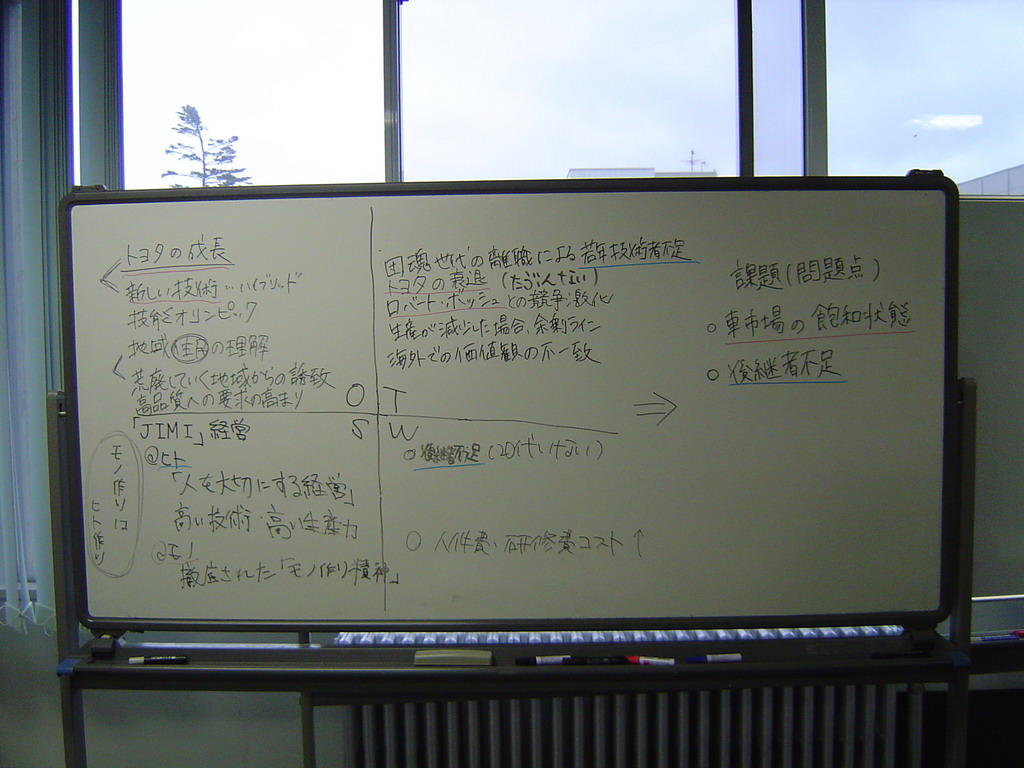 トヨタの成長
新しい技術…ハイブリッド
技能オリンピック
地域住民の理解
荒廃していく地域からの誘致
高品質への要求の高まり
O
T
団魂世代の離職による若年技術者不足
トヨタの衰退(たぶんない)
ロバート・ボッシュとの競争激化
生産が減少した場合、余剰ライン
海外での価値観の不一致
S
W
「JIMI」経営
@ヒト
「人を大切にする経営」
高い技術・高い生産力
@モノ
徹底された「モノ作り精神」
モノ作りは
ヒト作り
○後継者不足(20代いない)
○人件費・研修費コスト↑
⇒
課題(問題点)
○車市場の飽和状態
○後継者不足